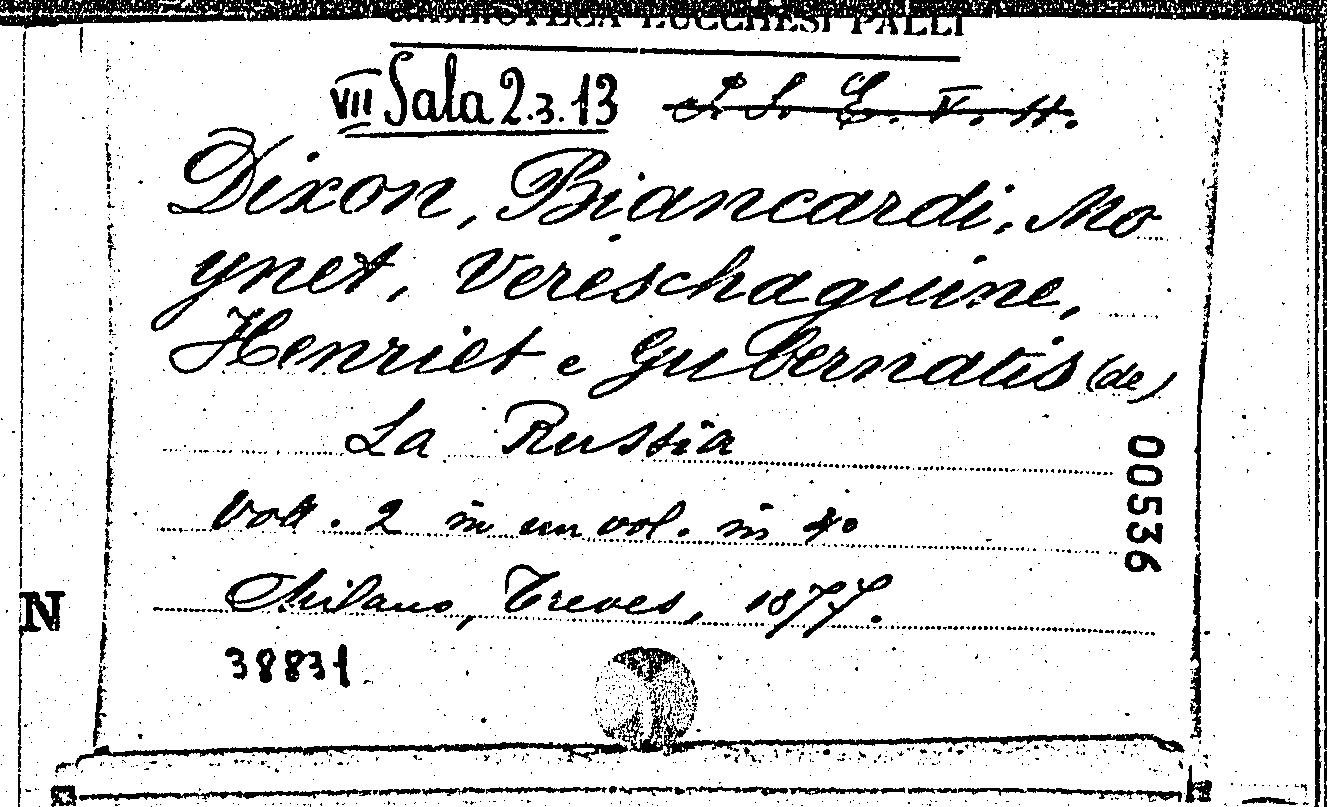 BIBLIOTECA LUCCHESI PALLI
VII Sala 2.3.13 L. L. E. V. H.
Dixon, Biancardi, Mo
ynet, Vereschaguine,
Henriet e Gubernatis (de)
La Russia
Voll. 2 in un vol. in 4º
Milano, Treves, 1877.
38831
00536
N